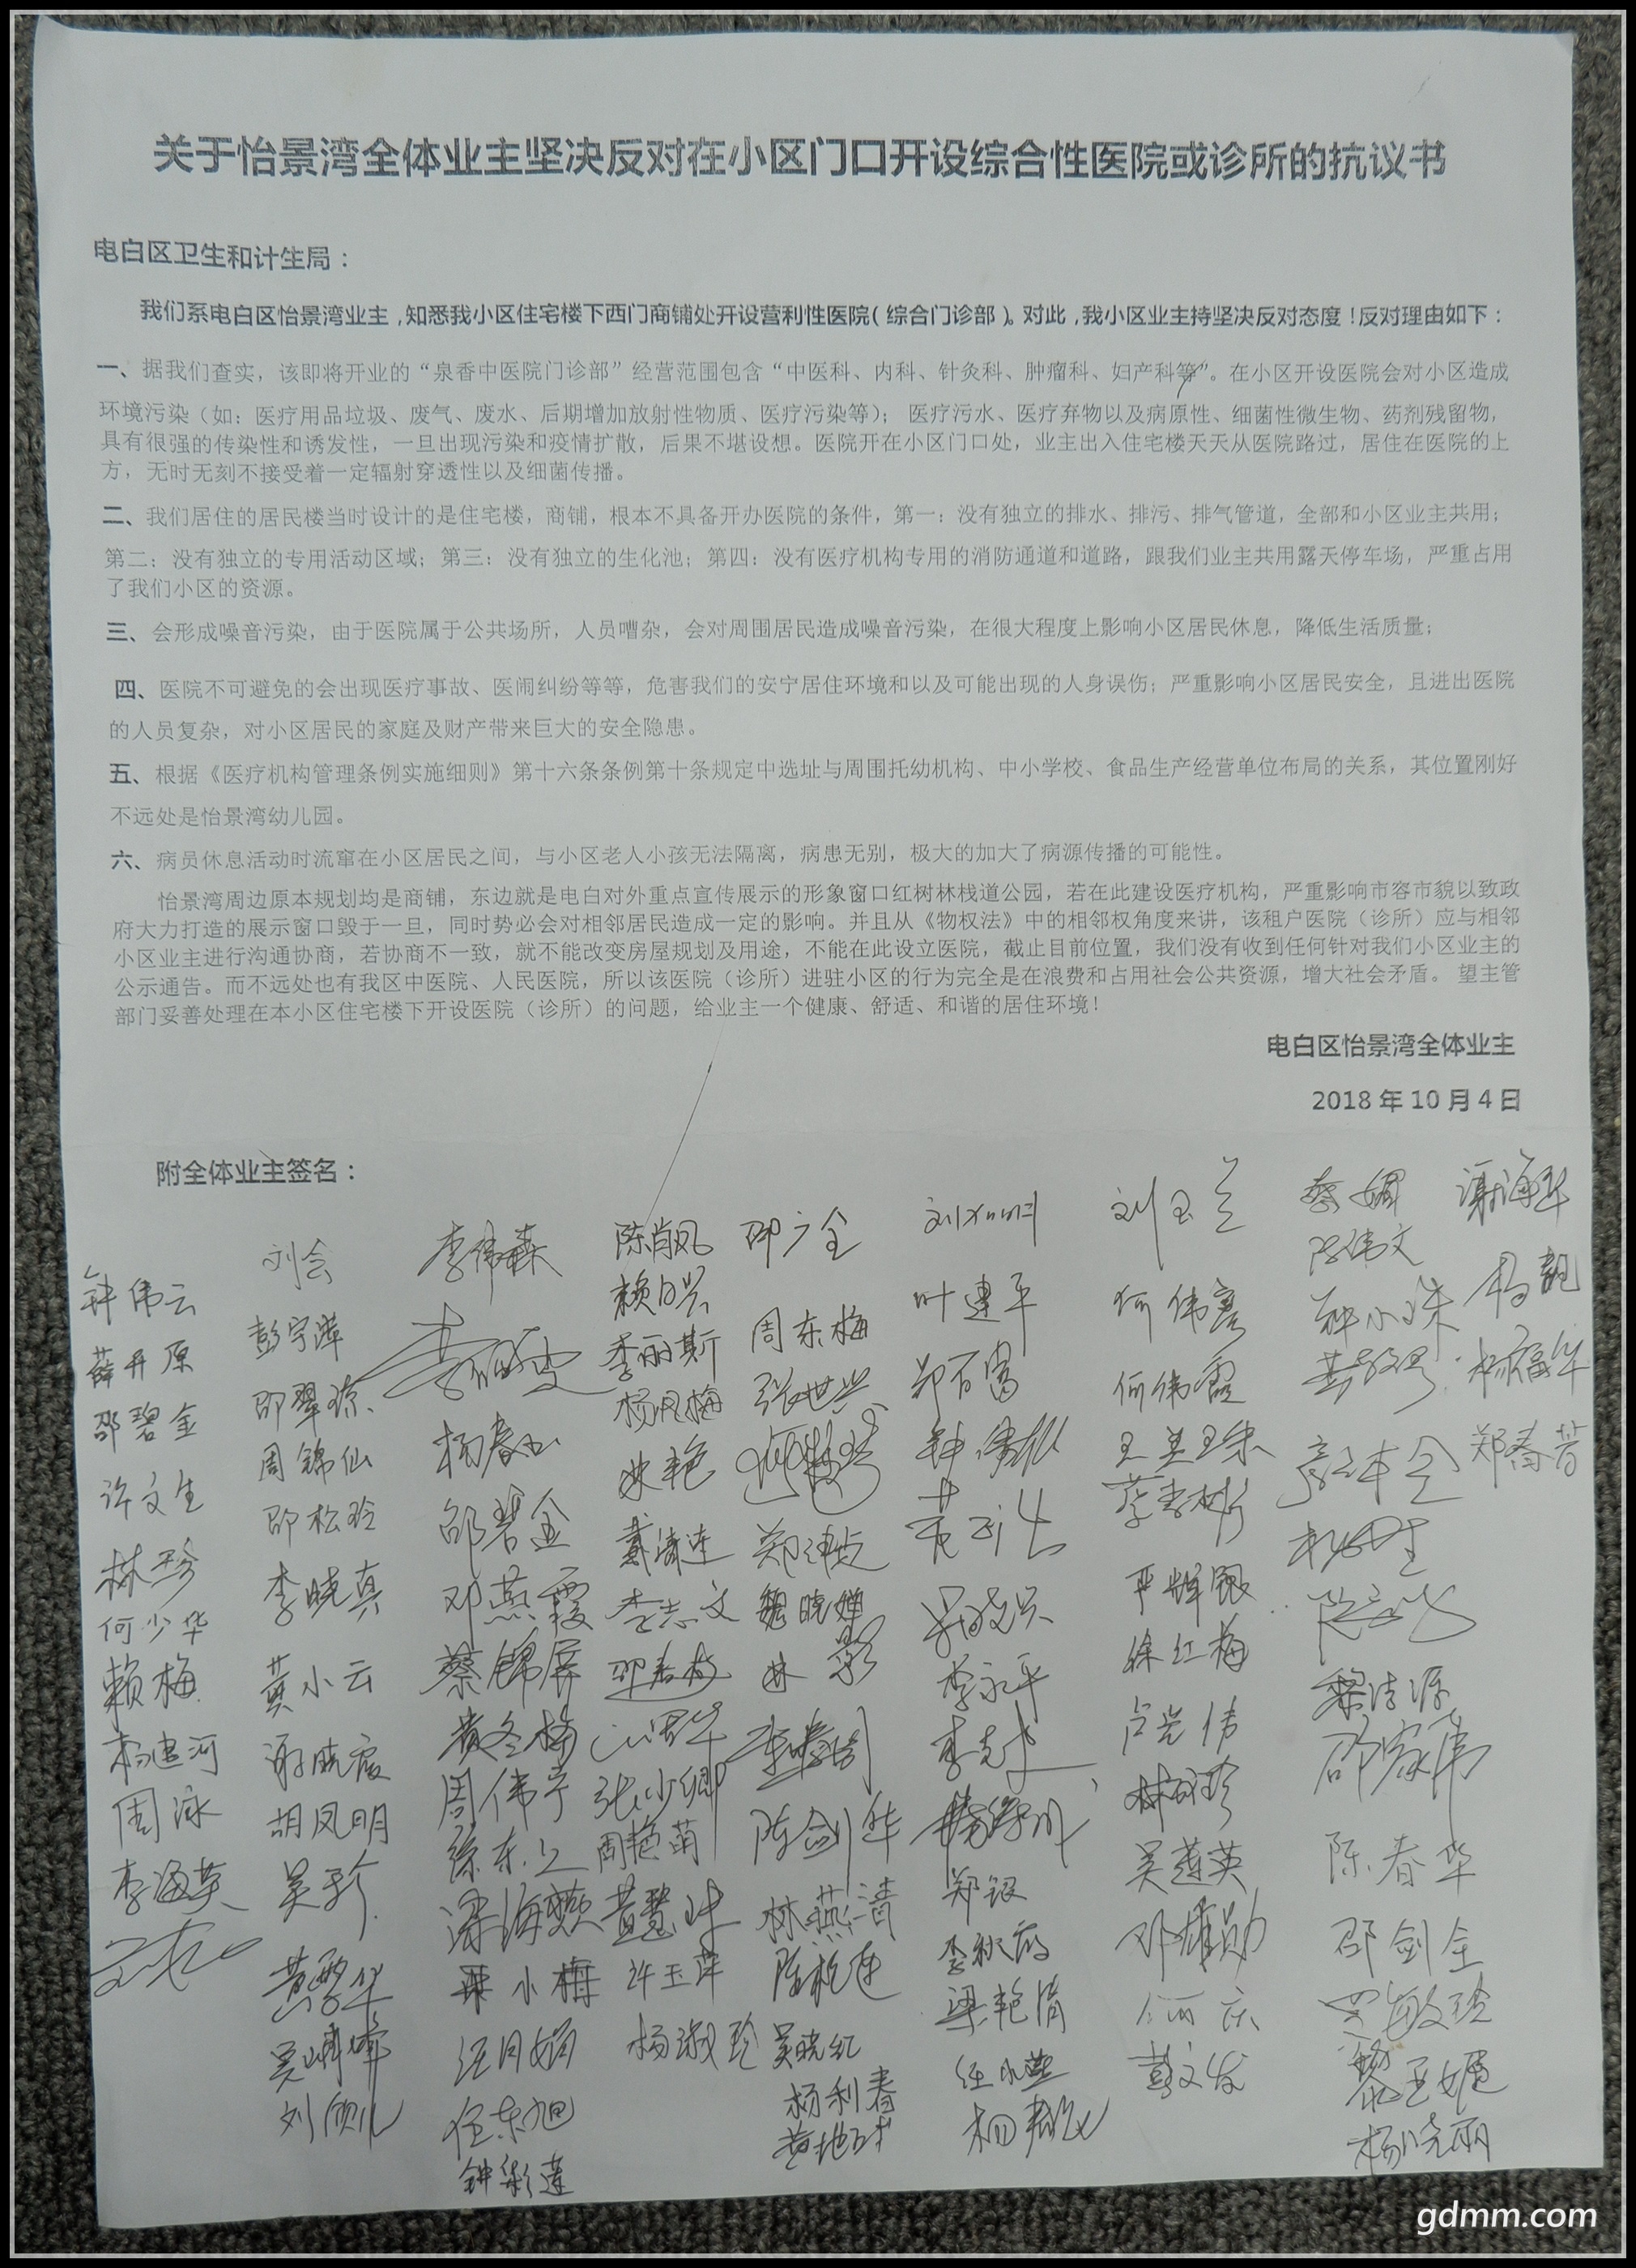 关于怡景湾全体业主坚决反对在小区门口开设综合性医院或诊所的抗议书
电白区卫生和计生局：
我们系电白区怡景湾业主，知悉我小区住宅楼下西门商铺处开设营利性医院（综合门诊部）。对此，我小区业主持坚决反对态度！反对理由如下：
一、据我们查实，该即将开业的“泉香中医院门诊部”经营范围包含“中医科、内科、针灸科、肿瘤科、妇产科等”。在小区开设医院会对小区造成
环境污染（如：医疗用品垃圾、废气、废水、后期增加放射性物质、医疗污染等）； 医疗污水、医疗弃物以及病原性、细菌性微生物、药剂残留物，
具有很强的传染性和诱发性，一旦出现污染和疫情扩散，后果不堪设想。医院开在小区门口处，业主出入住宅楼天天从医院路过，居住在医院的上
方，无时无刻不接受着一定辐射穿透性以及细菌传播。
二、我们居住的居民楼当时设计的是住宅楼，商铺，根本不具备开办医院的条件，第一：没有独立的排水、排污、排气管道，全部和小区业主共用；
第二：没有独立的专用活动区域；第三：没有独立的生化池；第四：没有医疗机构专用的消防通道和道路，跟我们业主共用露天停车场，严重占用
了我们小区的资源。
三、会形成噪音污染，由于医院属于公共场所，人员嘈杂，会对周围居民造成噪音污染，在很大程度上影响小区居民休息，降低生活质量；
四、医院不可避免的会出现医疗事故、医闹纠纷等等，危害我们的安宁居住环境和以及可能出现的人身误伤；严重影响小区居民安全，且进出医院
的人员复杂，对小区居民的家庭及财产带来巨大的安全隐患。
五、根据《医疗机构管理条例实施细则》第十六条条例第十条规定中选址与周围托幼机构、中小学校、食品生产经营单位布局的关系，其位置刚好
不远处是怡景湾幼儿园。
六、病员休息活动时流窜在小区居民之间，与小区老人小孩无法隔离，病患无别，极大的加大了病源传播的可能性。
怡景湾周边原本规划均是商铺，东边就是电白对外重点宣传展示的形象窗口红树林栈道公园，若在此建设医疗机构，严重影响市容市貌以致政
府大力打造的展示窗口毁于一旦，同时势必会对相邻居民造成一定的影响。并且从《物权法》中的相邻权角度来讲，该租户医院（诊所）应与相邻
小区业主进行沟通协商，若协商不一致，就不能改变房屋规划及用途，不能在此设立医院，截止目前位置，我们没有收到任何针对我们小区业主的
公示通告。而不远处也有我区中医院、人民医院，所以该医院（诊所）进驻小区的行为完全是在浪费和占用社会公共资源，增大社会矛盾。 望主管
部门妥善处理在本小区住宅楼下开设医院（诊所）的问题，给业主一个健康、舒适、和谐的居住环境！
电白区怡景湾全体业主
2018 年 10 月 4 日
附全体业主签名：
钟伟云
薛开原
邵碧金
许文生
林珍
何少华
赖梅
周泳
李海英
刘会
彭宇萍
邵翠琼
周锦仙
邵松玲
李晓真
龚小云
谢晓霞
胡凤明
吴珍
黄黎华
李伟森
杨春
邵碧金
邓燕霞
蔡锦屏
黄冬梅
周伟宁
梁海燕
小梅
任东旭
钟彩莲
陈肖凤
李丽斯
杨凤梅
林艳
戴清连
李志文
张少卿
周艳萌
黄慧
许玉萍
杨淑珍
邵广全
周东梅
张世兴
魏晓婵
林影
陈剑华
林燕清
吴晓红
杨利春
叶建平
郑百富
李永平
郑银
梁艳清
刘玉兰
何伟霞
严辉银
徐红梅
吴莲英
邓雄勋
蔡媚
陈伟文
钟小珠
黎洁源
邵家伟
陈春华
邵剑全
杨晓丽
谢海华
杨靓
杨福华
郑春芳
gdmm.com